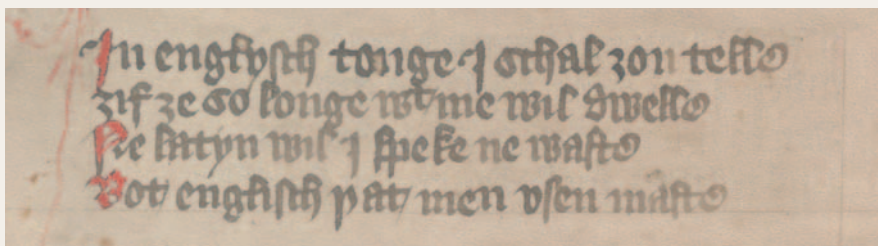 In englysch tonge I schal ȝou telle
ȝif ȝe so longe wt me wil dwelle
Ne latyn wil I speke ne waste
Bot englisch þat men vsen maste